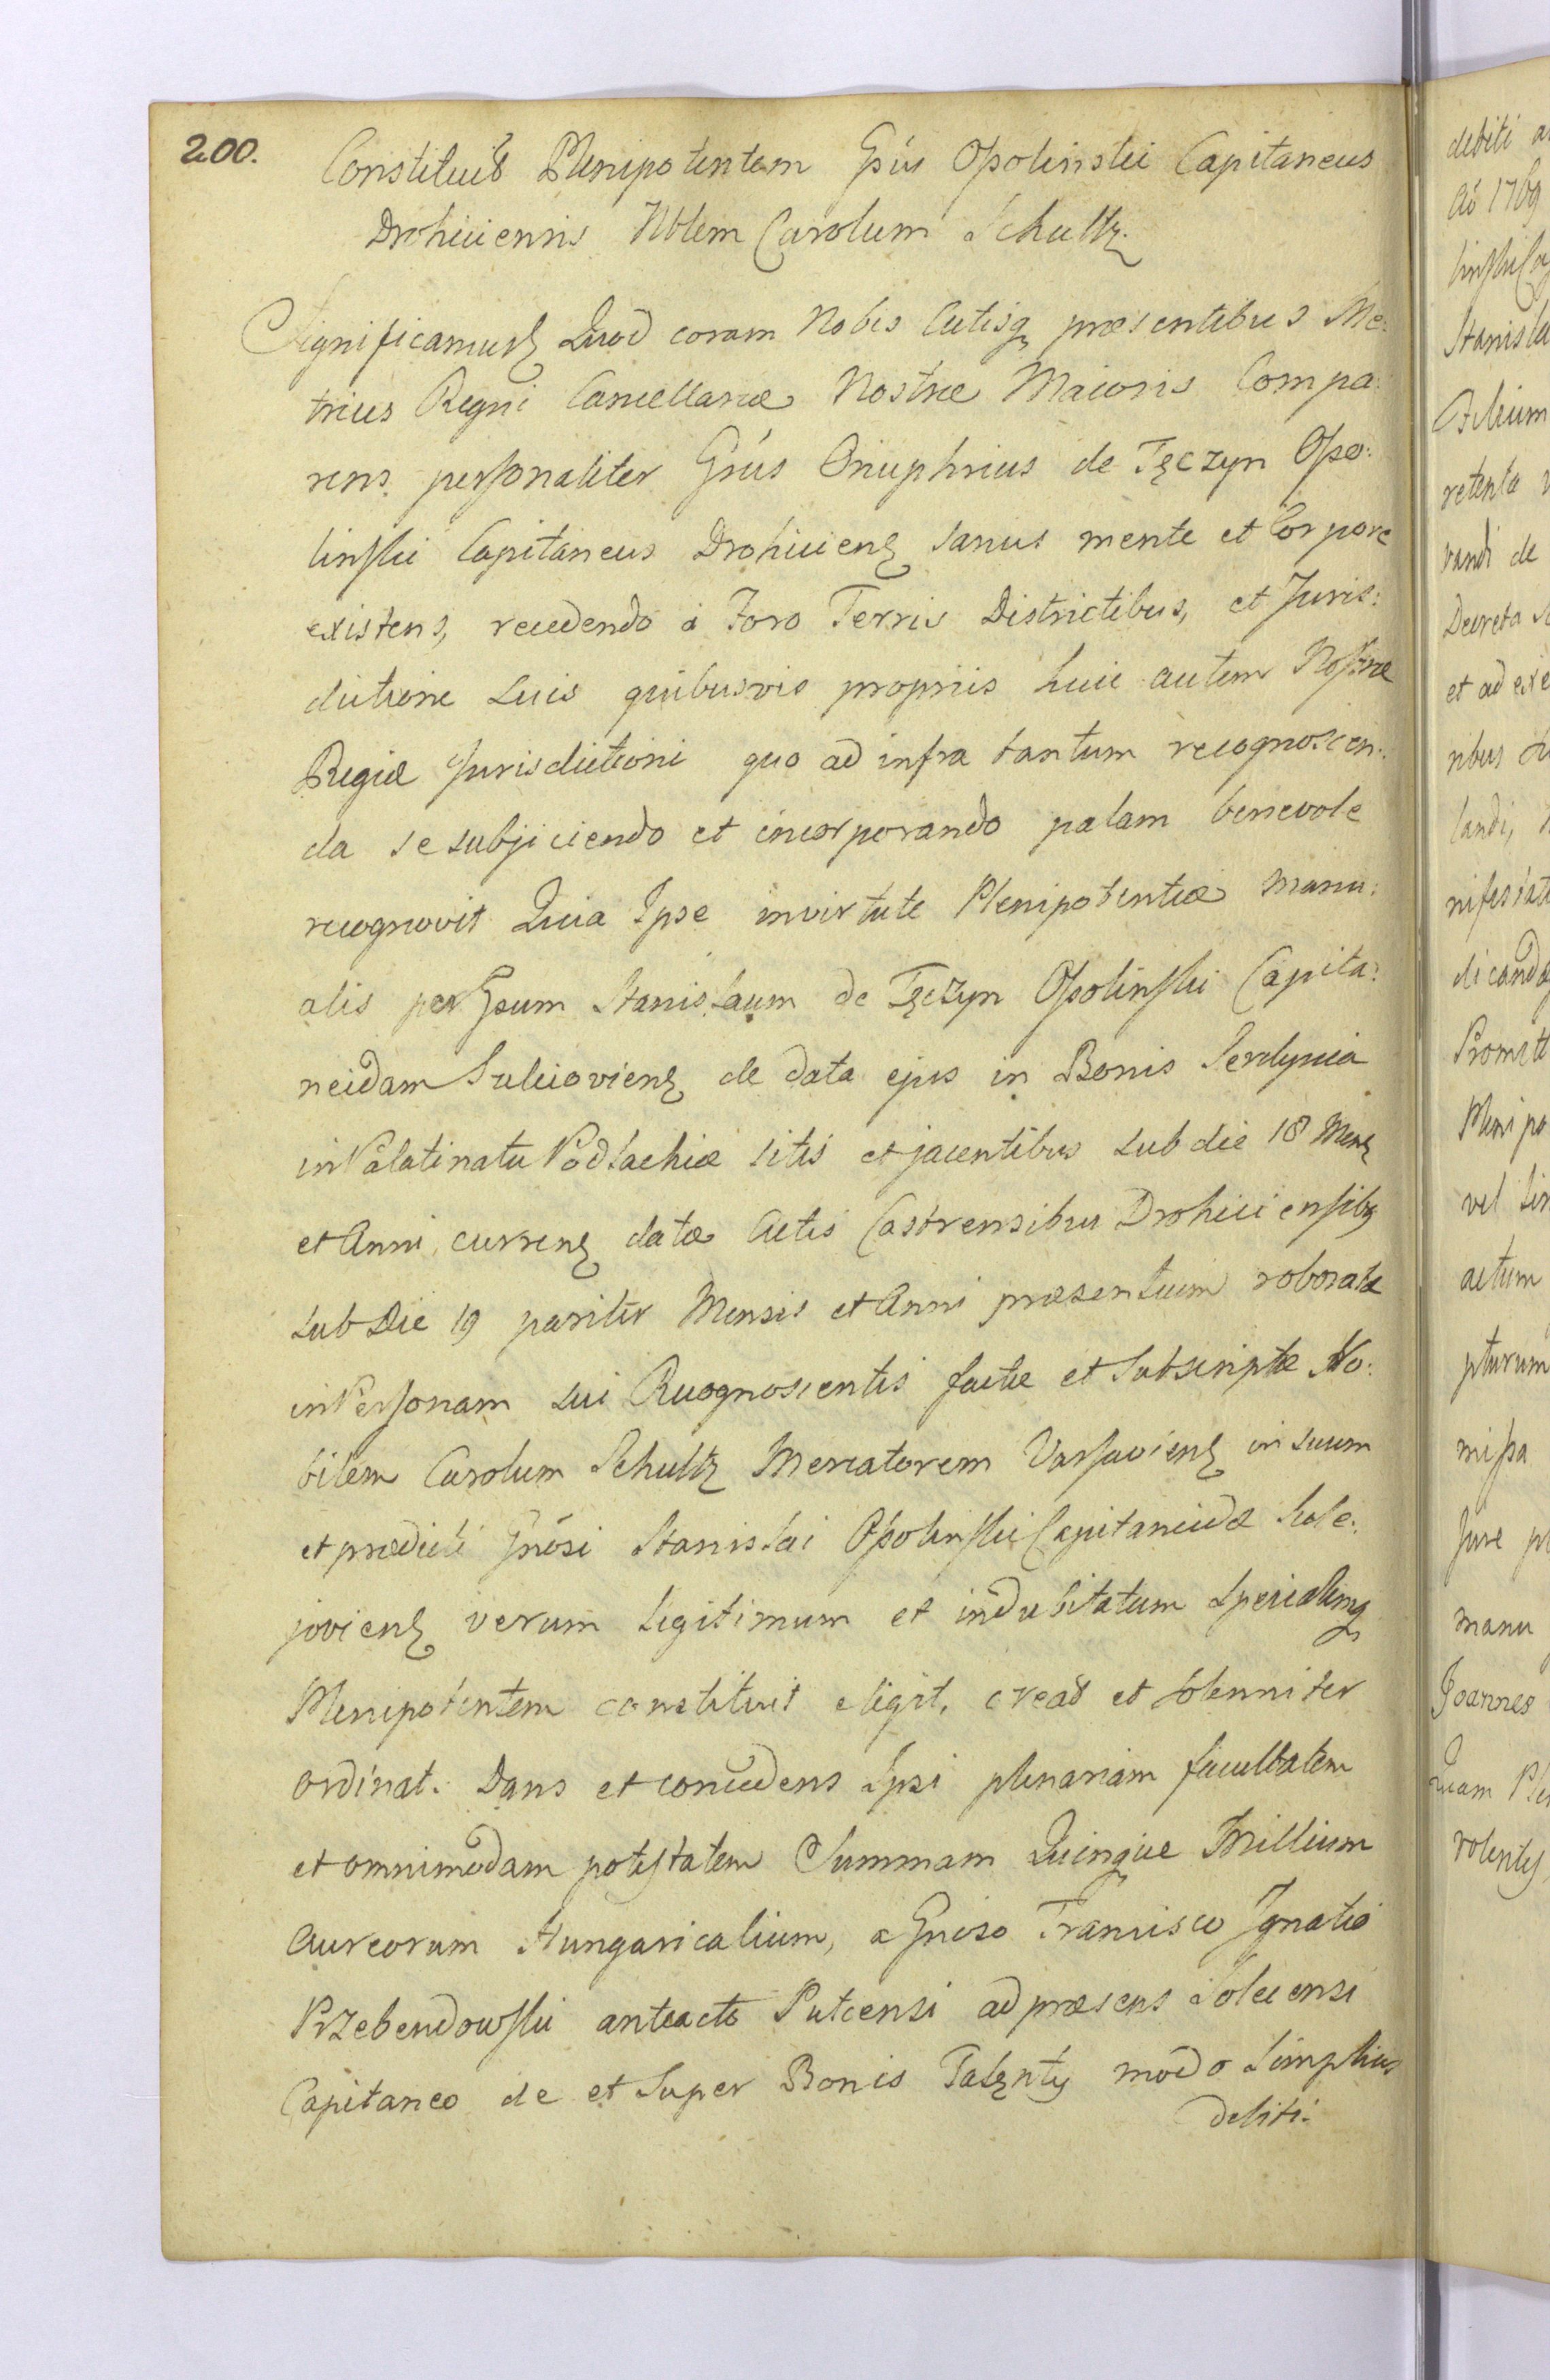 200.
Constituit Plenipotentem Gsus Ossolinskii Capitaneus
Drohiciensis Nblem Carolum Schultz.
Significamus Quod coram Nobis Actisq præsentibus Me:
trices Regni Cancellariæ Nostræ Maioris Compa:
rens personaliter Gnsus Onuphrius de Tęczyn Osso:
linskii Capitaneus Drohiciens sanus mente et Corpore
existens, recedendo à Foro Terris Districtibus, et Juris:
dictione suis quibusvis propriis huic autem Nostræ
Regiæ Jurisdictioni quo ad infra tantum recognoscen:
da se subjiciendo et incorporando palam benevole
recognovit Quia Ipse in virtute Plenipotentiæ manu:
alis per Gsum Stanislaum de Tęczyn Ossolinskii Capita:
neidam Suleioviens de data ejus in Bonis
in Palatinatu Podlachiæ sitis et jacentibus sub die 18 Mens
et Anni currens datæ Actis Castrensibus Drohiciensibq
sub Die 19 pariter Mensis et Anni præsentium roboratæ
in Personam sui Recognoscentis factæ et Subscriptæ No:
bilem Carolum Schultz Mercatorem Varsaviens in suum
et prædicti Gnosi Stanislai Ossolinskii Capitaneidæ Sule:
joviens verum legitimum et indubitatum specialemq
Plenipotentem constituit eligit, creat et solenniter
ordinat. Dans et concedens Ipsi plenariam facultatem
et omnimodam potestatem Summam Quinque Millium
Aureorum Hungaricalium, a Gnoso Francisco Ignatio
Przebendowskii anteacto Putcensi ad præsens Solecensi
Capitaneo de et super Bonis modo simplius
debiti.
debiti
Aō 1769
Stanisla
retenta
vandi de
Decreta
et ad exe
ribus
landi,
nifestat
dicanda
Promitt
Pleni po
vel
actum
pturum
missa
Jure
manu
Joannes
Quam Ple
volentes